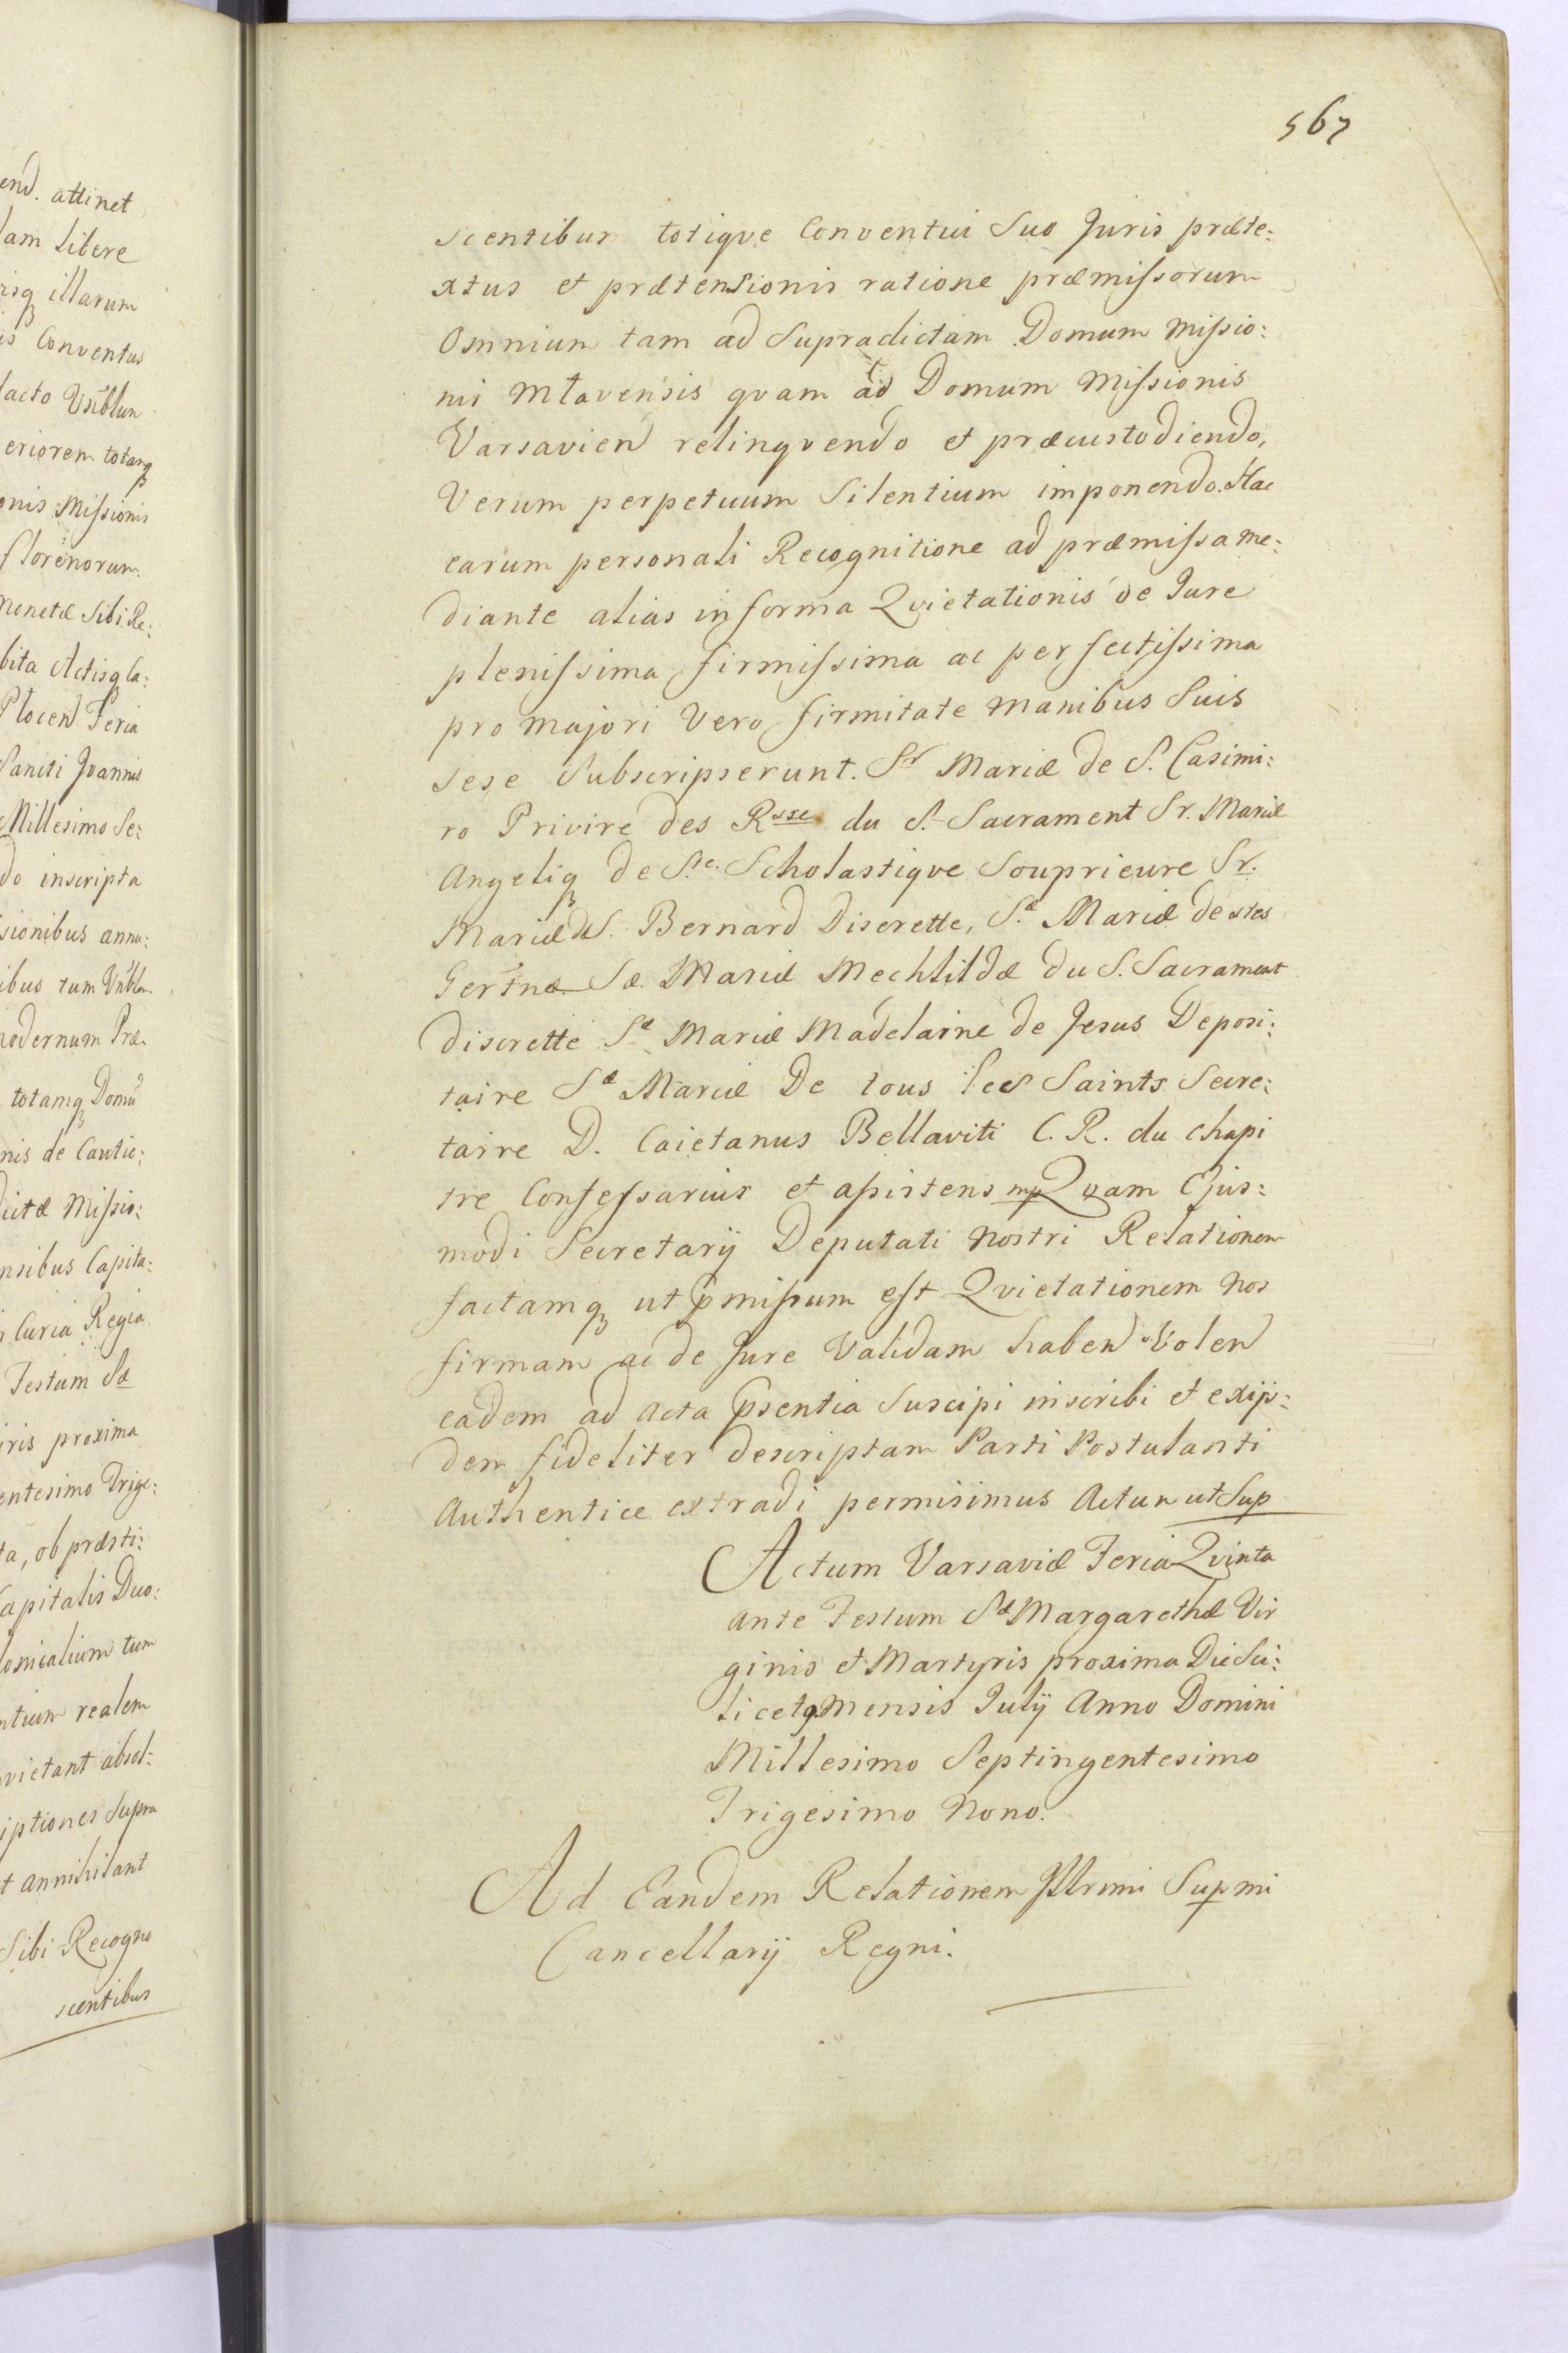 end. attinet
lam libere
risq illarum
is Conventus
facto
eriorem totamq
onis Missionis
florenorum
Sibi Re:
bita Actisq Ca:
Plocen Feria
Sancti Joannis
Millesimo Se:
do inscripta
sionibus annu:
ibus tum
modernum Præ
totamq Domũ
nis de Cautio:
dictæ Missio:
nsibus Capita:
Curia Regia
Festum Sæ
iris proxima
entesimo Trige:
ta, ob præsti:
Capitalis Duo:
onicalium tum
ntium realem
vietant absol:
iptiones Supra
t annihilant
Sibi Recogno
scentibus
567
scentibus totiqve Conventui Suo Juris præte:
xtus et prætensionis ratione præmissorum
Omnium tam ad Supradictam Domum Missio:
nis Mlavensis qvam ad Domum Missionis
Varsavien relinqvendo et præcustodiendo,
Verum perpetuum Silentium imponendo. Hac
earum personali Recognitione ad præmissa me:
diante alias in forma Qvietationis de Jure
plenissima firmissima ac perfectissima
pro majori Vero firmitate manibus Suis
sese Subscripserunt. Sr Mariæ de S. Casimi:
ro Privire des Rsse du S. Sacrament Sr. Mariæ
Angeliq de Ste. Scholastiqve Souprieure Sr.
Mariæ de S. Bernard Discrette, Sæ Mariæ de stes
Sæ. Mariæ Mechtildæ du S. Sacrament
discrette Sæ Mariæ Madelaine de Jesus Deposi:
taire Sæ Mariæ De tous les Saints Secre:
taire D. Caietanus Bellaviti C. R. du chapi
tre Confessarius et assistens mp Qvam Ejus:
modi Secretarij Deputati Nostri Relationem
factamq ut pmissum est Qvietationem Nos
firmam ac de Jure Validam haben Volen
eadem ad Acta psentia Suscipi inscribi et exijs:
dem fideliter descriptam Parti Postulanti
Authentice extradi permisimus Actum ut Sup
Actum Varsaviæ Feria Qvinta
ante Festum Sæ Margarethæ Vir
ginis et Martyris proxima Die Sci:
licet 9. Mensis Julij Anno Domini
Millesimo Septingentesimo
Trigesimo Nono.
Ad Eandem Relationem Illrmi Supmi
Cancellarij Regni.